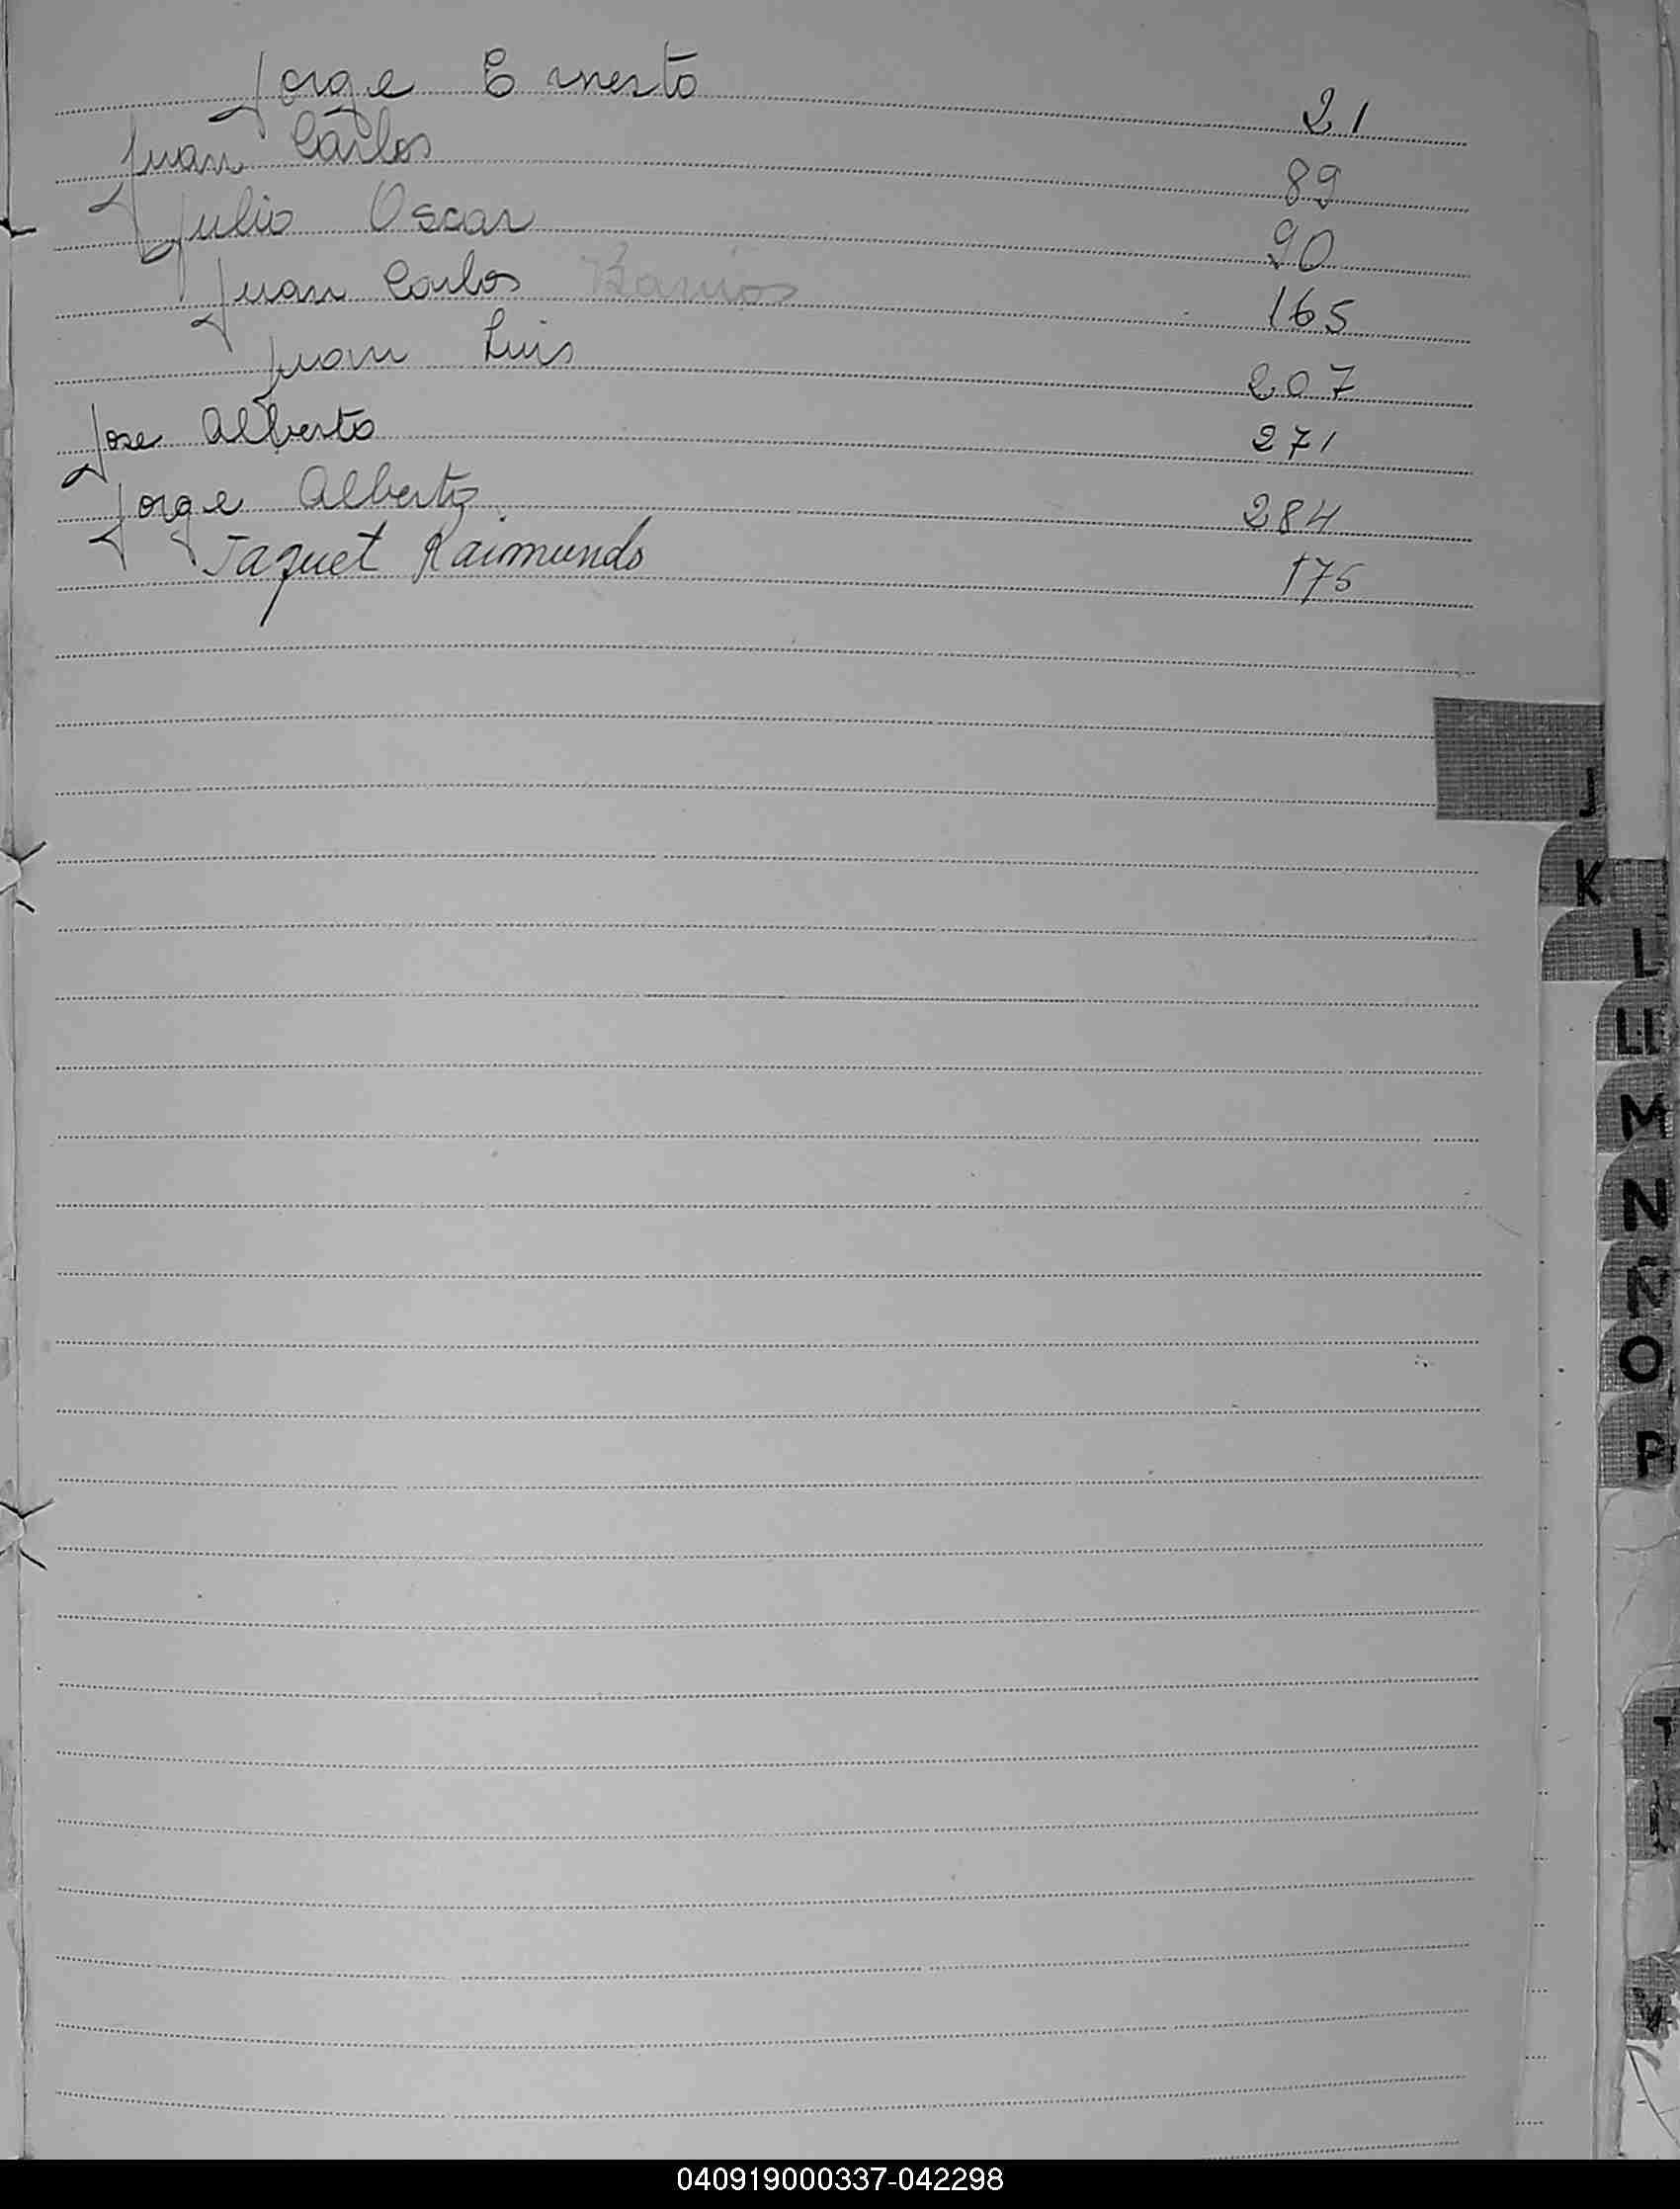 Jorge Ernesto 21
Juan Carlos 89
Julio Oscar 90
Juan Carlos Barrios 165
Juan Luis 207
Jose Alberto 271
Jorge Alberto 284
Jaquet Raimundo 175
J
K
L
Ll
M
N
Ñ
O
P
T
V
040919000337-042298